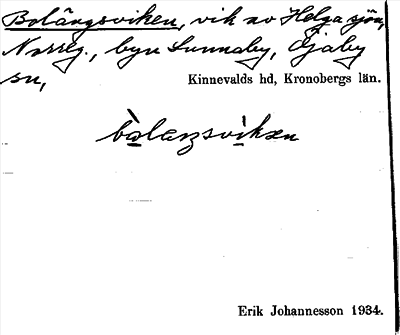 Bolångsviken, vik av Helgasjön,
Norreg., byn Sunnaby, Öjaby
sn,
Kinnevalds hd, Kronobergs län.
bòlaŋsvìkən
Erik Johannesson 1934.